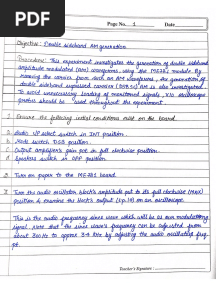 PDF
Page No. 1 Date
Objective: Double sideband AM generation.
Procedure: This experiment investigates the generation of double sideband
amplitude modulated (AM) waveforms, using the ME2B1 module. By
removing the carrier from such an AM waveforms, the generation of
double sideband suppressed carrier (DSBSC) AM is also investigated.
To avoid unnecessary loading of monitored signals, X10 oscilloscope
probes should be used throughout the experiment.
1 Ensure the following initial conditions exist on the board.
a Audio i/p select switch in INT position.
b Mode switch DSB position.
c Output amplifier's gain pot in full clockwise position.
d Speakers switch in OFF position
2 Turn on power to the board.
3 Turn the audio oscillator block's amplitude pot to its full clockwise (MAX)
position & examine the block's output (t.p.14) on an oscilloscope.
This is the audio frequency sine wave which will be as our modulating
signal. Note that the sine wave's frequency can be adjusted from
about 300 Hz to approx 3.4 kHz by adjusting the audio oscillator's freq
pot.
Teacher's Signature